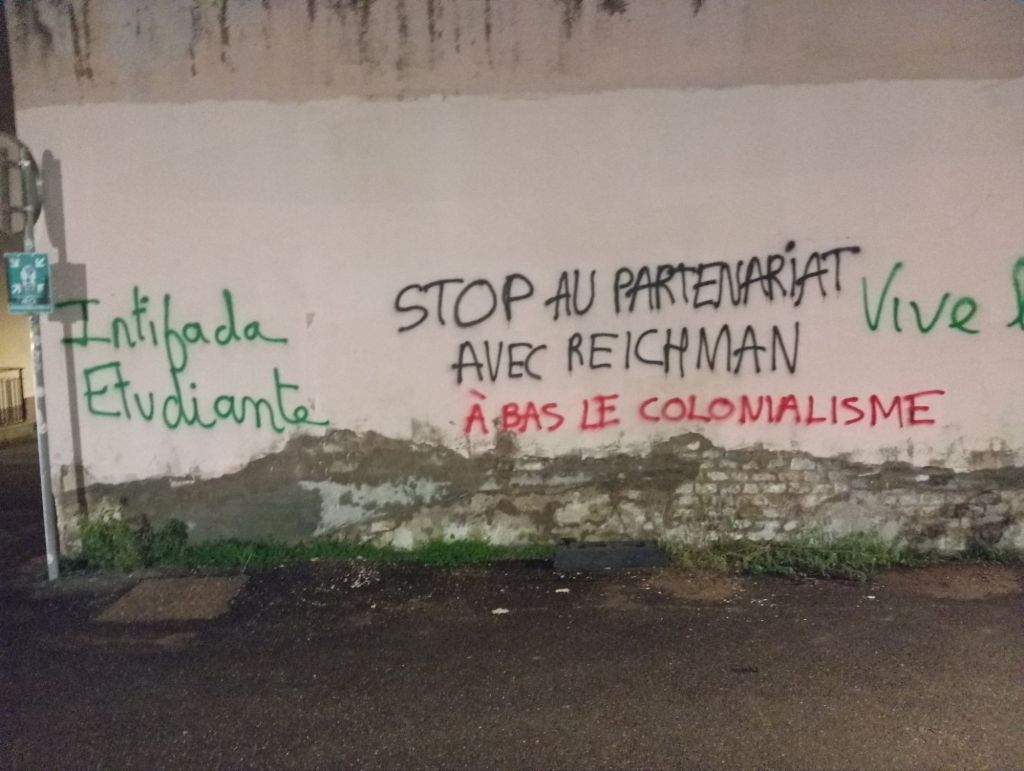 Intifada
Etudiante
STOP AU PARTENARiAT
AVEC REICHMAN
À BAS LE COLONIALISME
Vive